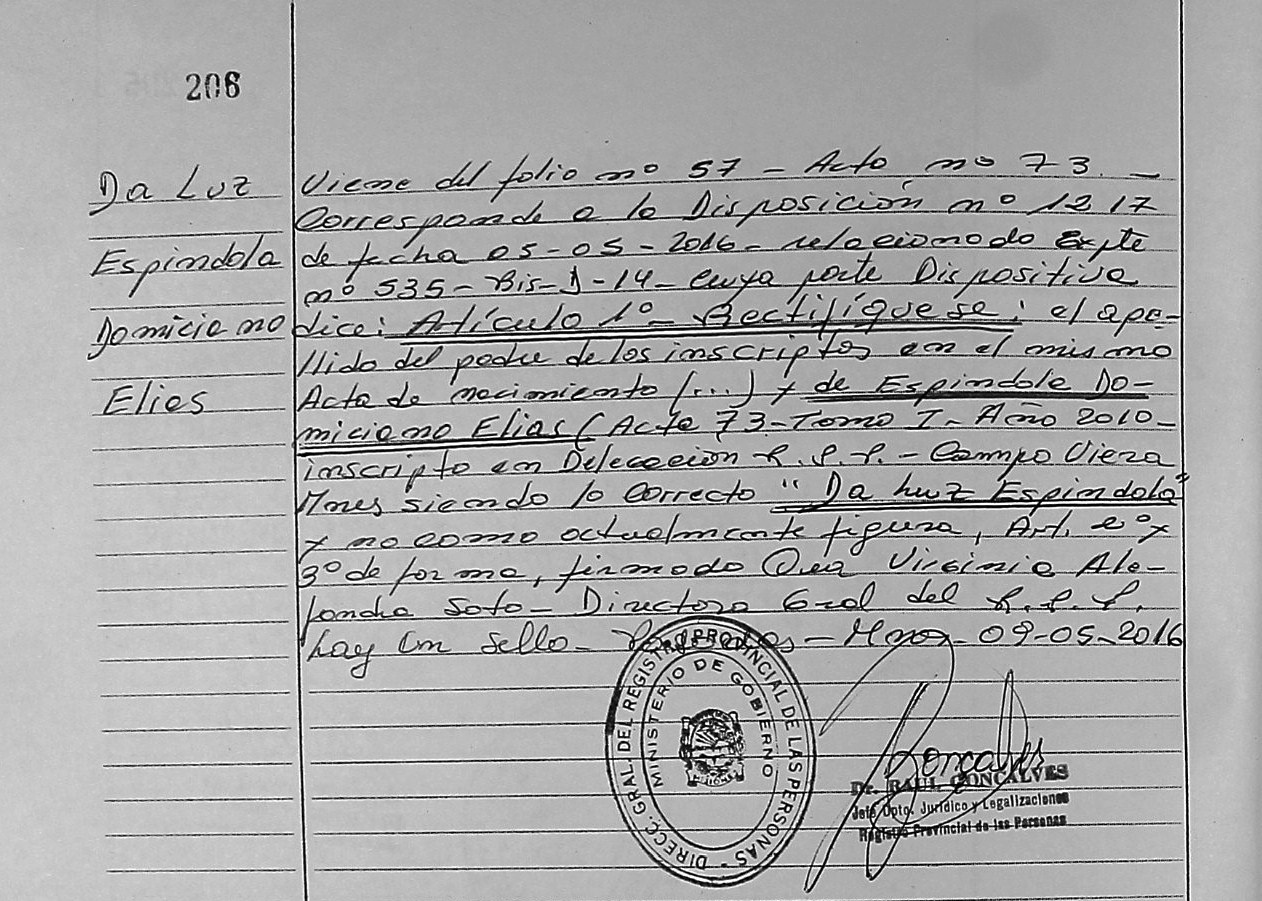 206
Da Luz
Espindola
Domiciano
Elias
Viene del folio nº 57 - Acta nº 73. -
Corresponde a la Disposición nº 1217
de fecha 05-05-2016- relacionado Expte
nº 535-Bis-D-14- cuya parte Dispositiva
dice: Artículo 1º- Rectifíquese: el ape-
llido del padre de los inscriptos en el mismo
Acta de nacimiento (...) y de Espindola Do-
miciano Elias (Acta 73-Tomo I- Año 2010-
inscripto en Delegación R.P.P. - Campo Viera
Mnes siendo lo correcto "Da Luz Espindola"
y no como actualmente figura, Art. 2º y
3º de forma, firmado Dra Virginia Ale-
jandra Soto- Directora Gral del R.P.P.
hay un sello- Posadas- Mnes- 09-05-2016
DIRECC. GRAL. DEL REGISTRO PROVINCIAL DE LAS PERSONAS -
MINISTERIO DE GOBIERNO
MISIONES
Goncalves
Dr. RAUL GONCALVES
Jefe Dpto. Jurídico y Legalizaciones
Registro Provincial de las Personas